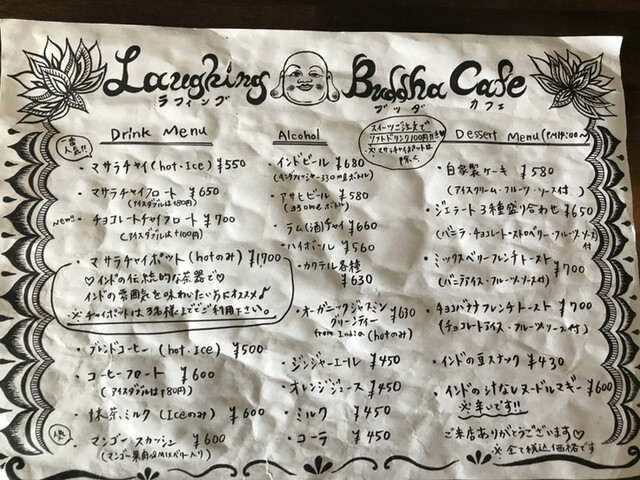 Laughing Buddha Cafe
ラフィング ブッダ カフェ
Drink Menu
一番人気!!
・マサラチャイ(hot・Ice) ¥550
・マサラチャイフロート ¥650
(アイスダブルは+80円)
new!!
・チョコレートチャイフロート ¥700
(アイスダブル+100円)
・マサラチャイポット(hotのみ) ¥1700
♡インドの伝統的な茶器で♡
インドの雰囲気を味わいたい方にオススメ♪
※チャイポットは3名様まででご利用下さい。
・ブレンドコーヒー(hot・Ice) ¥500
・コーヒーフロート ¥600
(アイスダブルは+80円)
・抹茶ミルク(Iceのみ) ¥600
人気
・マンゴースカッシュ ¥600
(マンゴー果肉&MIXベリー入り)
Alcohol
・インドビール ¥680
(キングフィッシャー330mlボトル)
・アサヒビール ¥580
(330mlボトル)
・ラム(酒)チャイ ¥660
・ハイボール ¥560
・カクテル各種
¥630
・オーガニックジャスミン
グリーンティー ¥630
from India (hotのみ)
・ジンジャーエール ¥450
・オレンジジュース ¥450
・ミルク ¥450
・コーラ ¥450
スイーツご注文で
ソフトドリンク100円引き♥
※マサラチャイポットは
除く
Dessert Menu(PM14:00~)
・自家製ケーキ ¥580
(アイスクリーム・フルーツ・ソース付)
・ジェラート3種盛り合わせ ¥650
(バニラ・チョコレート・ストロベリー・フルーツ・ソース付)
・ミックスベリーフレンチトースト
¥700
(バニラアイス・フルーツ・ソース付)
・チョコバナナフレンチトースト ¥700
(チョコレートアイス・フルーツ・ソース付)
・インドの豆スナック ¥430
・インドの汁なしヌードルマギー ¥600
※辛いです!!
ご来店ありがとうございます♡
※全て税込価格です